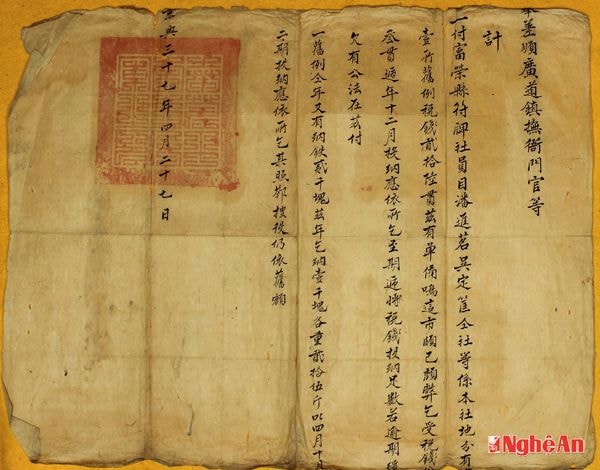 奉差順廣道鎮撫衙門官等
計
一付富榮縣符禆社員目潘進茗吳定筐仝社等係本社地分有
壹所舊例稅錢貳拾陸貫茲有單備鳴這市頗已頹弊乞受稅錢
叁貫遞年十二月投納應依所乞至期遞將稅錢投納足數若逾期
欠有公法在茲付
一舊例仝年又有納鉄貳千塊茲年乞納壹千塊各重貳拾伍斤以四月十
二期投納應依所乞其照郍搜後仍依舊額
景興三十七年四月二十七日
Nghệ An